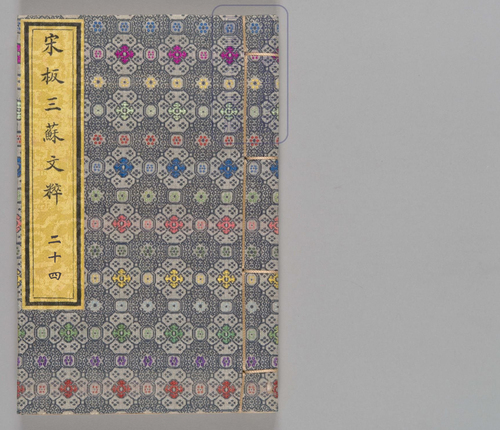 宋板三蘇文粹 二十四